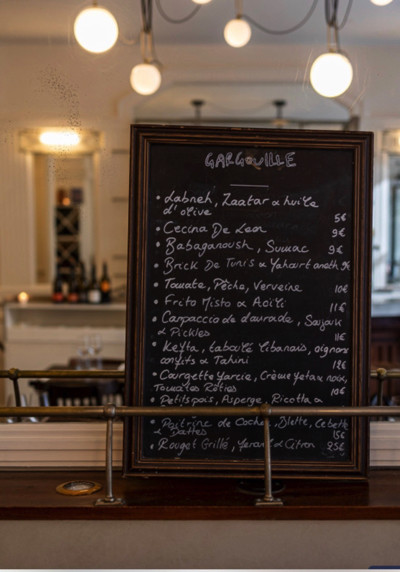 GARGOUILLE
• Labneh, Zaatar & huile
d'olive
5€
• Cecina De Leon 9€
• Babaganoush, Sumac 9€
• Brick De Tunis & Yahourt aneth 9€
• Tomate, Pêche, Verveine 10€
• Frito Misto & Aioli 11€
• Carpaccio de daurade,
& Pickles 11€
• Kefta, taboulé libanais, oignons
confits & Tahini
• Courgette farcie, Crème feta & noix,
Tomates Rôties 10€
• Petits pois, Asperge, Ricotta &
• Poitrine de Cochon, Blette, Cebette
& Dattes 15€
• Rouget Grillé, & Citron 25€